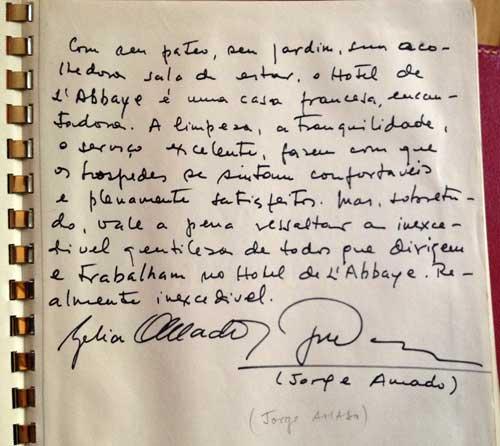 Com seu pateo, seu jardim, sua aco-
lhedora sala de estar, o Hotel de
L'Abbaye é uma casa francesa, encan-
tadora. A limpeza, a tranquilidade,
o serviço excelente, fazem com que
os hospedes se sintam confortaveis
e plenamente satisfeitos. Mas, sobretu-
do, vale a pena ressaltar a inexce-
divel gentileza de todos que dirigem
e trabalham no Hotel de L'Abbaye. Re-
almente inexcedivel.
Zelia Amado
(Jorge Amado)
(Jorge AMADO)